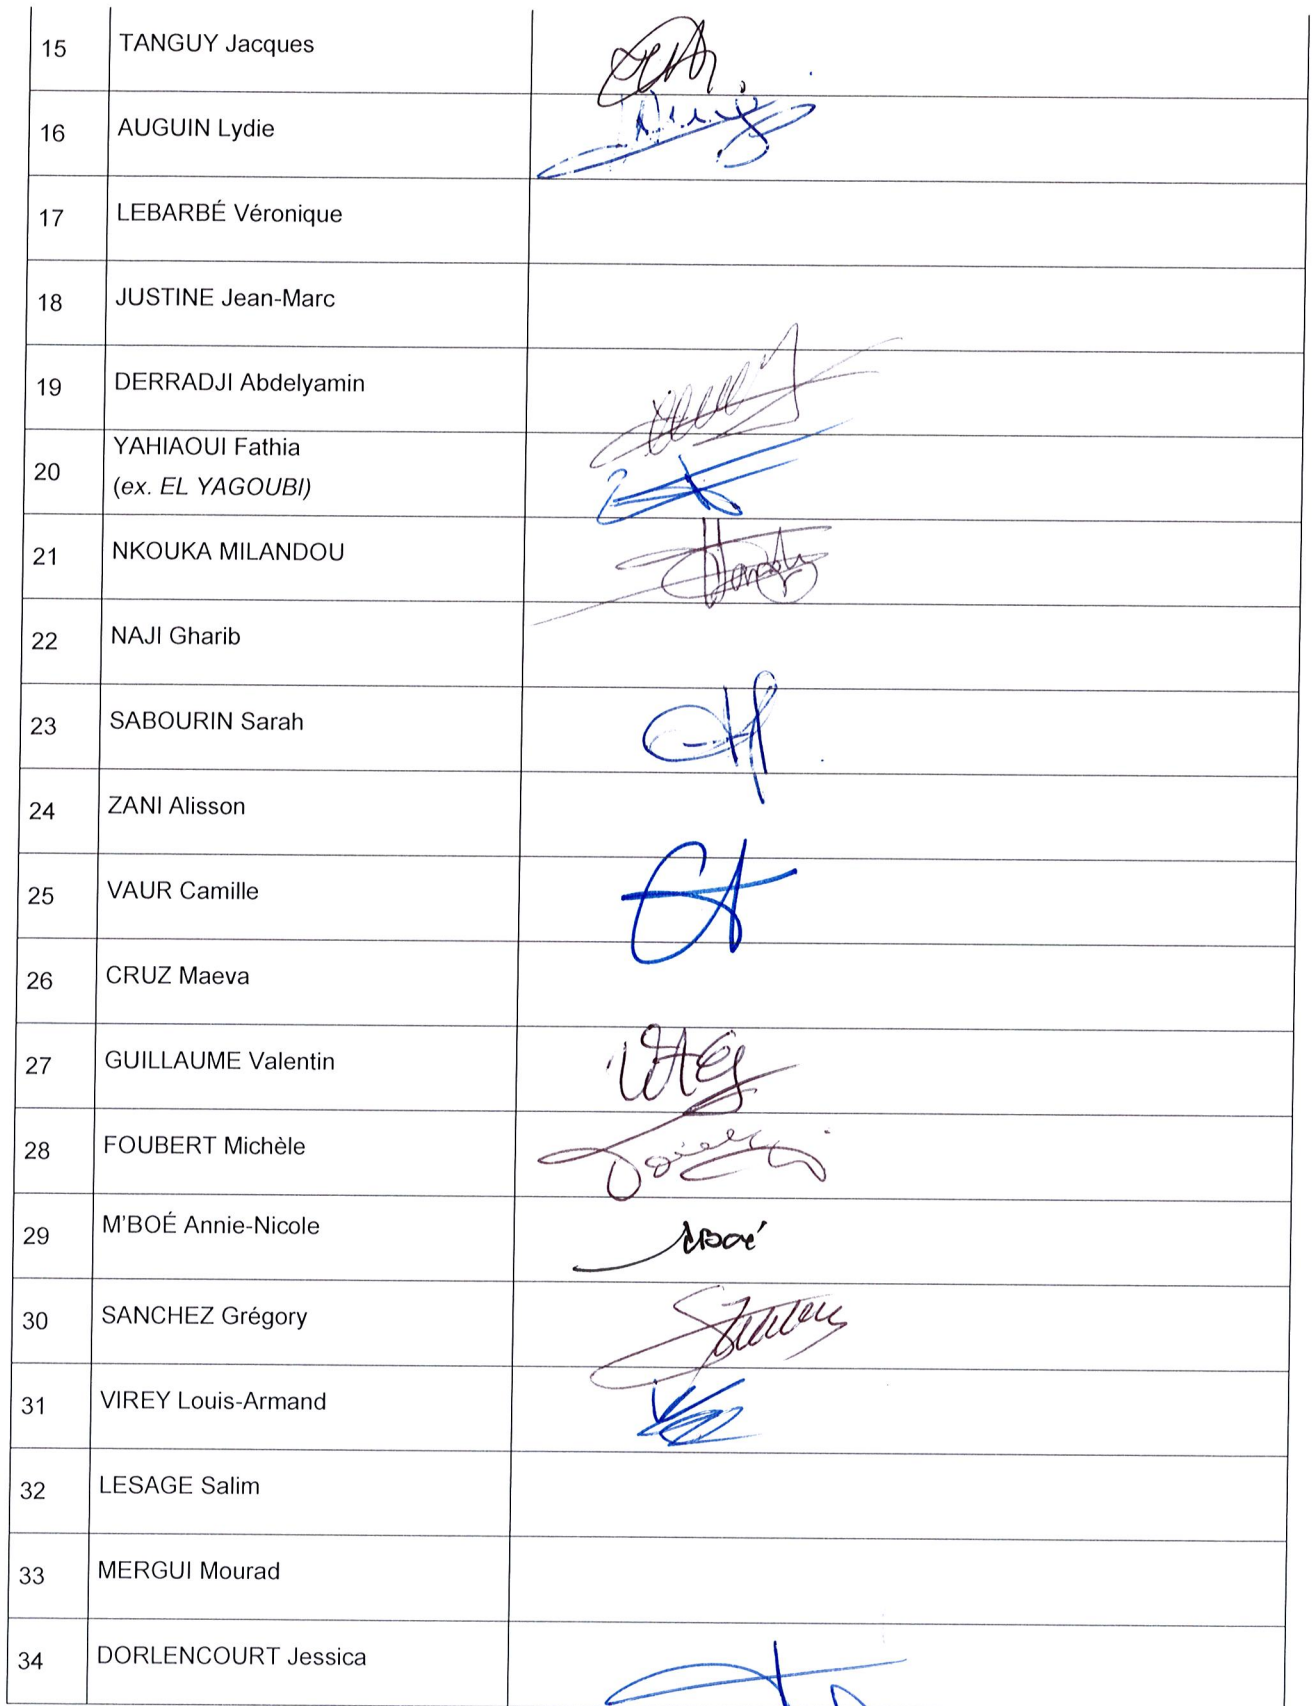 15 TANGUY Jacques
16 AUGUIN Lydie
17 LEBARBÉ Véronique
18 JUSTINE Jean-Marc
19 DERRADJI Abdelyamin
20 YAHIAOUI Fathia
(ex. EL YAGOUBI)
21 NKOUKA MILANDOU
22 NAJI Gharib
23 SABOURIN Sarah
24 ZANI Alisson
25 VAUR Camille
26 CRUZ Maeva
27 GUILLAUME Valentin
28 FOUBERT Michèle
29 M'BOÉ Annie-Nicole
30 SANCHEZ Grégory
31 VIREY Louis-Armand
32 LESAGE Salim
33 MERGUI Mourad
34 DORLENCOURT Jessica